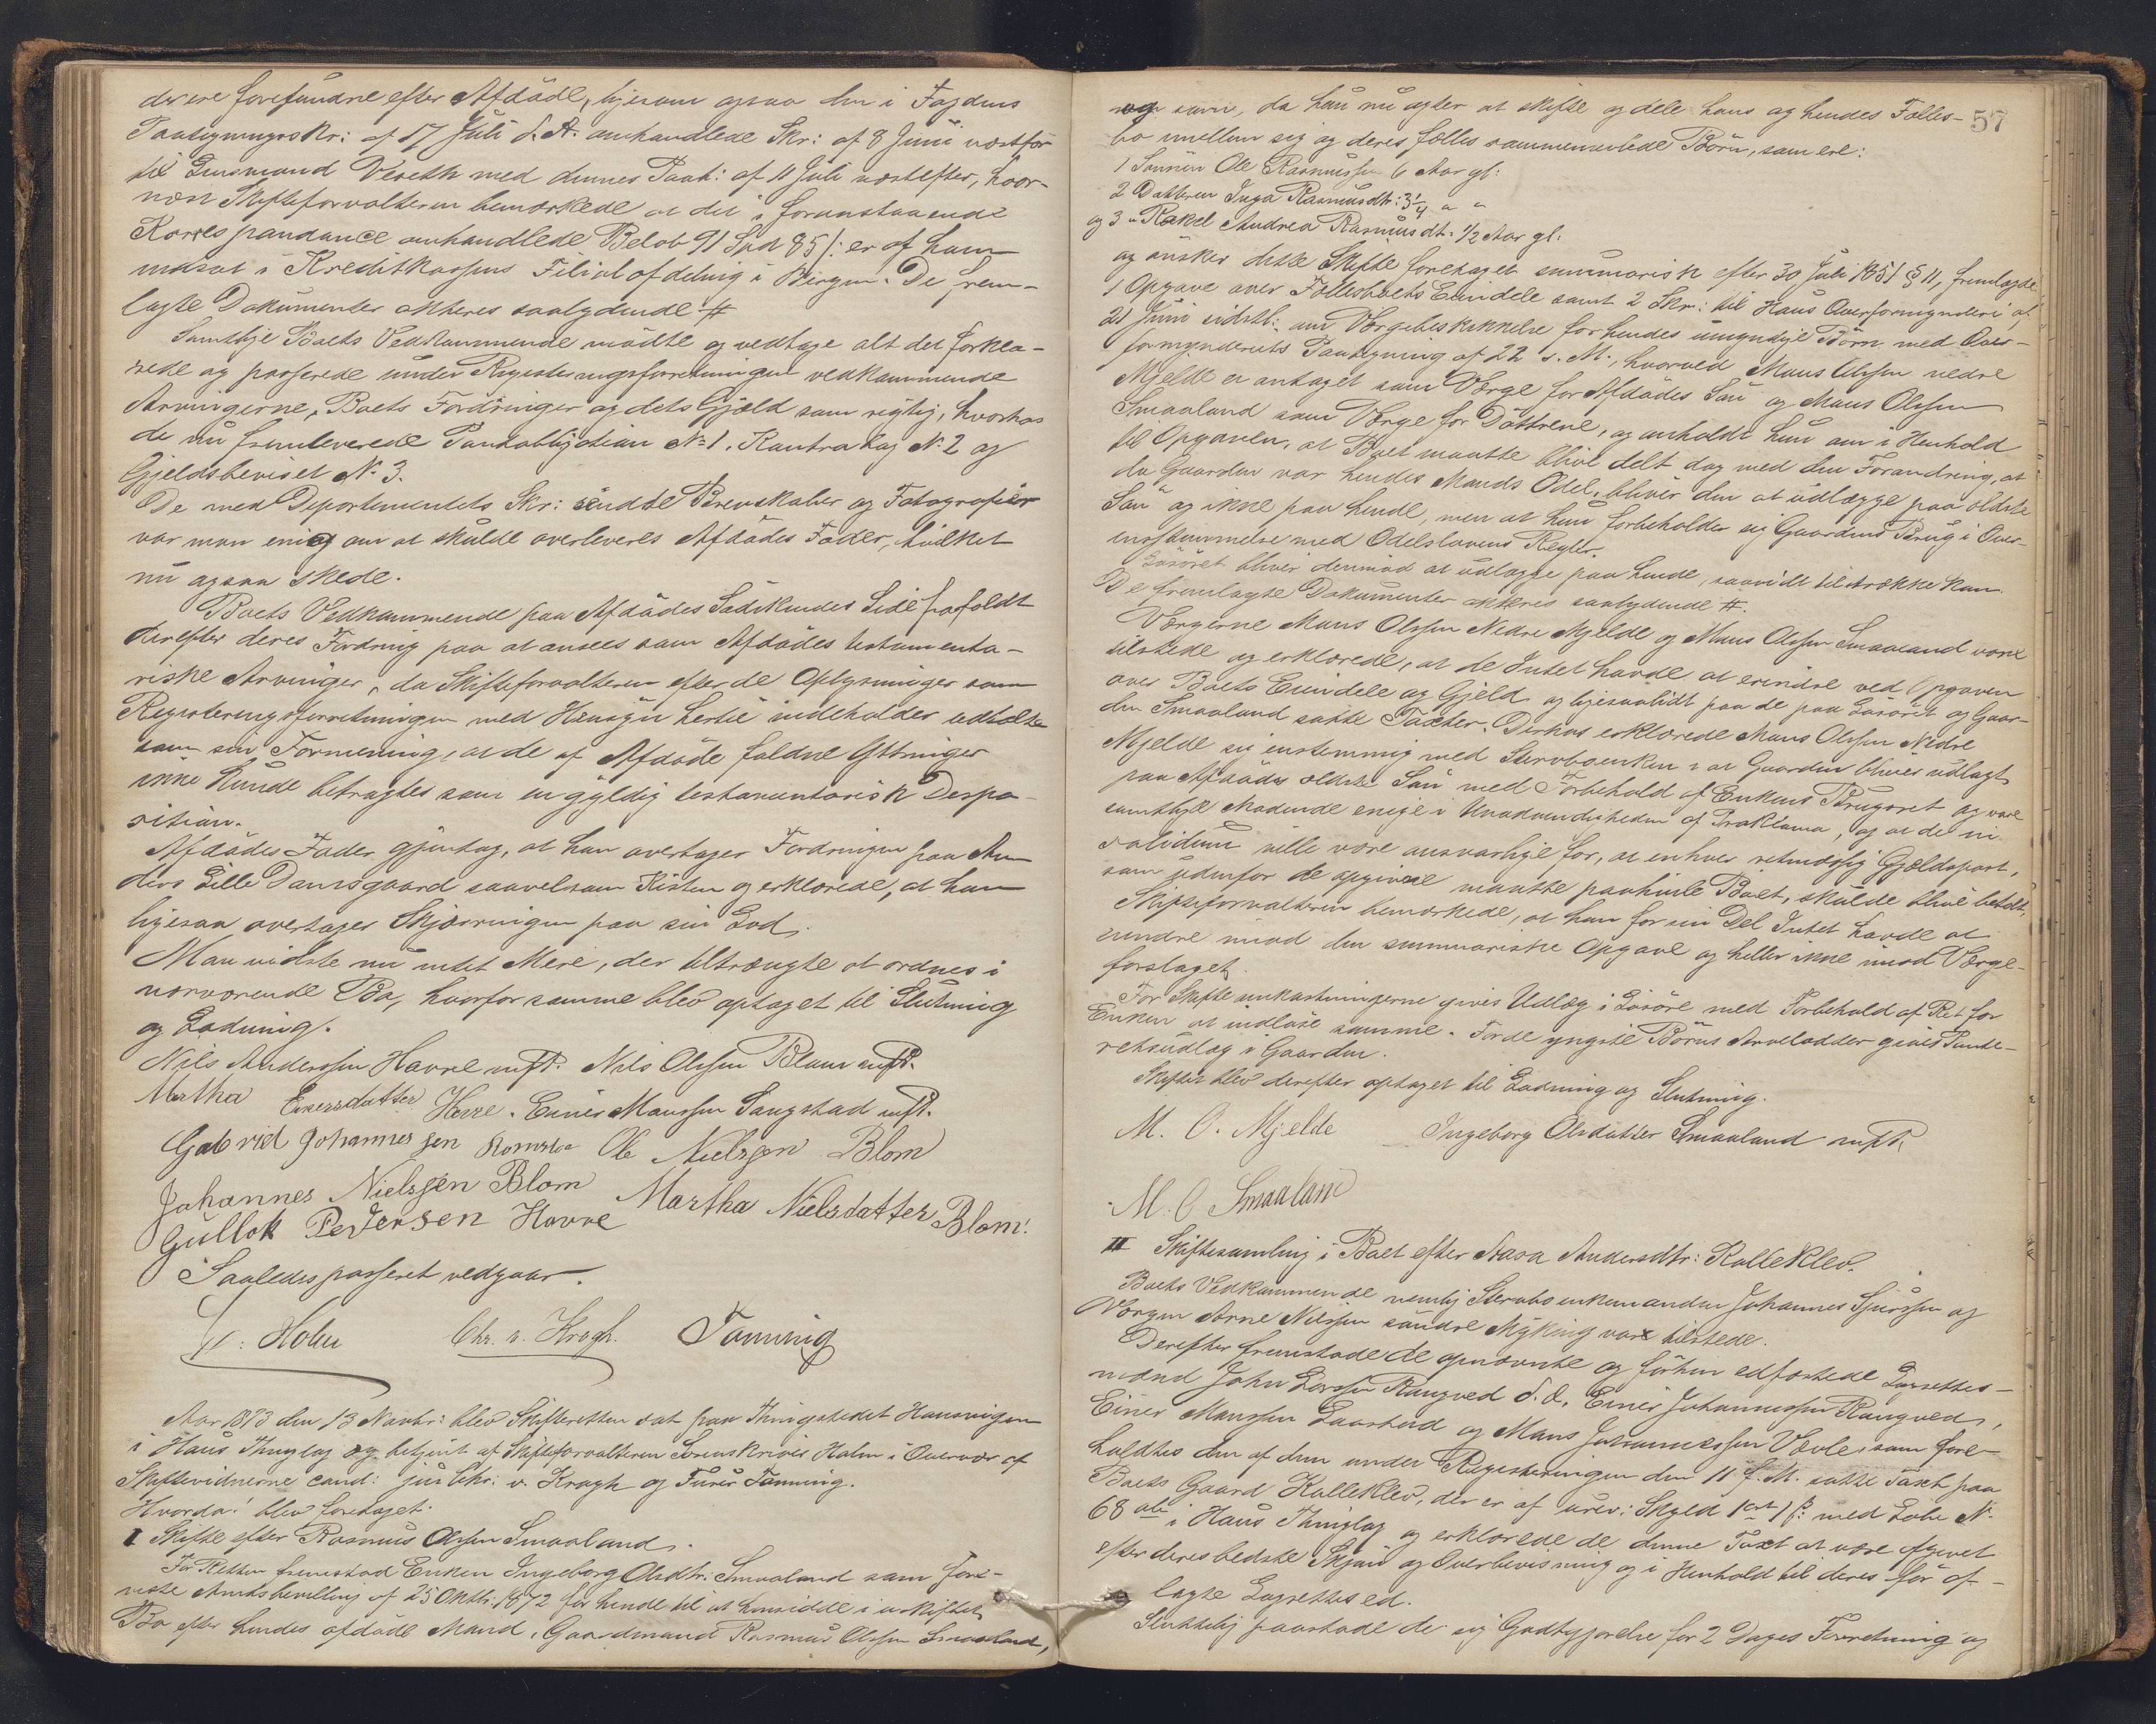 der ere forefundne efter Afdöde, ligesom ogsaa den i Fogdens
Paategningsskr: af 17 Juli d. A. omhandlede Skr: af 8 Juni næstfør
til Lensmand Vereth med dennes Paat: af 11 Juli næstefter, hvor-
næst Skifteforvalteren bemærkede at det i foranstaaende
Korrespondance omhandlede Belöb 91 Spd 85 ß: er af ham
indsat i Kreditkassens Filialafdeling i Bergen. De frem-
lagte Dokumenter akteres saalydende #
Samtlige Boets Vedkommende mödte og vedtoge alt det forkla-
rede og passerede under Registreringsforretningen vedkommende
Arvingerne, Boets Fordringer og dets Gjæld som rigtig, hvorhos
de nu fremleverede Pantobligation No 1, Kontrakt No 2 og
Gjeldsbeviset No 3.
De med Departementets Skr: sendte Brevskaber og Fotografier
var man enig om at skulde overleveres Afdödes Fader, hvilket
nu ogsaa skede.
Boets Vedkommende paa Afdödes Södskendes Side frafaldt
derefter deres Fordring paa at ansees som Afdödes testamenta-
riske Arvinger, da Skifteforvalteren efter de Oplysninger som
Registreringsforretningen med Hensyn hertil indeholder udtalte
som sin Formening, at de af Afdöde faldne Yttringer
ikke kunde betragtes som en gyldig testamentarisk Dispo-
sition.
Afdödes Fader gjentog, at han overtager Fordringen paa An-
ders Lille Damsgaard saavelsom Kisten og erklærede, at han
ligesaa overtager Skjærningen paa sin Lod.
Man vidste nu intet Mere, der tiltrængte at ordnes i
nærværende Bo, hvorfor samme blev optaget til Slutning
og Lodning.
Nils Anderssen Havre m f P. Nils Olssen Blom m f P.
Martha Einersdatter Havre. Einer Monssen Songstad m f P.
Gabriel Johannessen Romslo Ole Nielssen Blom
Johannes Nielssen Blom Martha Nielsdatter Blom.
Gullok Pedersen Havre
Saaledes passeret vedgaar.
Holm Chr. v. Krogh. Tönning
Aar 1873 den 13 Novbr: blev Skifteretten sat paa Thingstedet Hausvigen
i Haus Thinglag og betjent af Skifteforvalteren Sorenskriver Holm i Overvær af
Skiftevidnerne cand: jur Chr: v. Krogh og Fuwer Tönning.
Hvorda! blev foretaget:
I Skifte efter Rasmus Olssen Smaaland.
For Retten fremstod Enken Ingeborg Olsdtr: Smaaland som fore-
viste Amtsbevilling af 25 Oktbr. 1872 for hende til at hensidde i uskiftet
Bo efter hendes afdöde Mand, Gaardmand Rasmus Olssen Smaaland,
57
savn, da hun nu agter at skifte og dele hans og hendes Fælles-
bo imellem sig og deres fælles sammenavlede Börn, som ere:
1 Sönnen Ole Rasmussen 6 Aar gl:
2 Datteren Inga Rasmusdtr: 3 1/4 " "
og 3 " Rakel Andrea Rasmusdt: 1/2 Aar gl.
og önsker dette Skifte foretaget summarisk efter 30 Juli 1851 § 11, fremlagde
1 Opgave over Fællesboets Eiendele samt 2 Skr: til Haus Overformynderi af
21 Juni sidstl: om Værgebeskikkelse for hendes umyndige Börn med Over-
formynderiets Paategning af 22 s. M., hvorved Mons Olssen nedre
Mjelde er antaget som Værge for Afdödes Sön og Mons Olssen
Smaaland som Værge for Döttrene, og anholdt hun om i Henhold
til Opgaven, at Boet maatte blive delt dog med den Forandring, at
da Gaarden var hendes Mands Odel, bliver den at udlægge paa ældste
Sön og ikke paa hende, men at hun forbeholder sig Gaardens Brug i Over-
ensstemmelse med Odelslovens Regler.
Lösöret bliver derimod at udlægge paa hende, saavidt tilstrække kan.
De fremlagte Dokumenter akteres saalydende #.
Værgerne Mons Olssen Nedre Mjelde og Mons Olssen Smaaland vare
tilstede og erklærede, at de Intet havde at erindre ved Opgaven
over Boets Eiendele og Gjeld og ligesaalidt paa de paa Lösöret og Gaar-
den Smaaland satte Taxter. Derhos erklærede Mons Olssen Nedre
Mjelde sig enstemmig med Stervboenken i at Gaarden bliver udlagt
paa Afdödes ældste Sön med Forbehold af Enkens Brugsret og vare
samtlige Mödende enige i Unödvendigheden af Proklama, og at de in
solidum ville være ansvarlige for, at enhver retmæssig Gjældspost,
som udenfor de opgivne maatte paahvile Boet, skulde blive betalt.
Skifteforvalteren bemærkede, at han for sin Del Intet havde at
erindre imod den summariske Opgave og heller ikke imod Værge-
forslaget.
For Skifteomkostningerne gives Udlæg i Lösöre med Forbehold af Ret for
Enken at indlöse samme. For de yngste Börns Arvelodder gives Pante-
retsudlæg i Gaarden.
Skiftet blev derefter optaget til Lodning og Slutning.
M. O. Mjelde Ingeborg Olsdatter Smaaland m f P.
M. O Smaaland
II Skiftesamling i Boet efter Aasa Andersdtr: Kalleklev.
Boets Vedkommende nemlig Stervboenkemanden Johannes Sjurssen og
Værgen Arne Nilssen söndre Myking vare tilstede.
Derefter fremstode de opnævnte og förhen edfæstede Lagrettes-
mænd John Larssen Raugved d. æ. Einer Johannessen Raugved,
Einer Monssen Gaarstad og Mons Johannessen Vævle, som fore-
holdtes den af dem under Registeringen den 11 f. M. satte Taxt paa
Boets Gaard Kalleklev, der er af urev: Skyld 1 ort 1 ß: med Löbe No
68 i Haus Thinglag og erklærede de denne Taxt at være afgivet
efter deres bedste Skjön og Overbevisning og i Henhold til deres för af-
lagte Lagrettesed.
Sluttelig paastode de sig Godtgjørelse for 2 Dages Forretning og